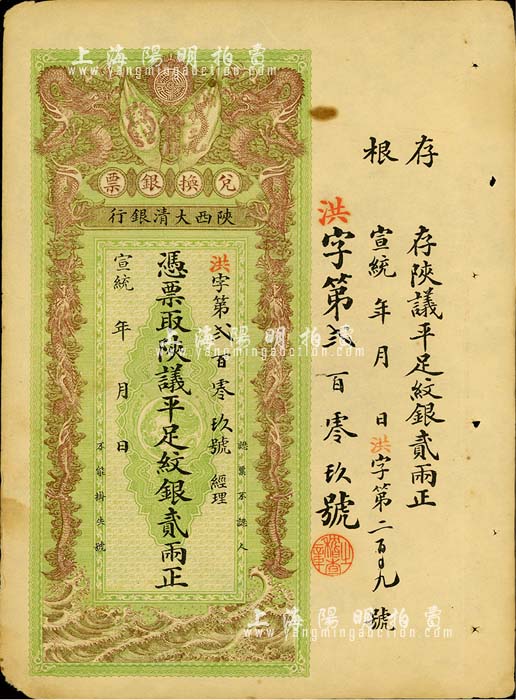 上海陽明拍賣
www.yangmingauction.com
存根
存陝議平足紋銀貳兩正
宣統 年 月 日 洪字第二百〇九號
洪字第貳百零玖號
兌換銀票
陝西大清銀行
洪字第貳百零玖號 經理
憑票取陝議平足紋銀貳兩正
宣統 年 月 日
認票不認人
不能掛失號
上海陽明拍賣
www.yangmingauction.com
上海陽明拍賣
www.yangmingauction.com